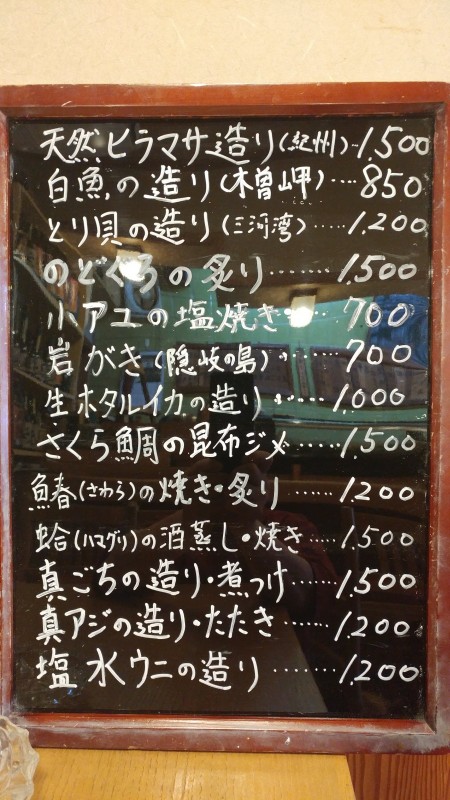 天然ヒラマサ造り(紀州)‥1,500
白魚の造り(木曽岬)‥‥850
とり貝の造り(三河湾)‥‥‥1,200
のどぐろの炙り‥‥‥‥1,500
小アユの塩焼き‥‥700
岩がき(隠岐の島)‥‥700
生ホタルイカの造り‥‥‥1,000
さくら鯛の昆布ジメ‥‥‥1,500
鰆(さわら)の焼き・炙り‥‥‥1200
蛤(ハマグリ)の酒蒸し・焼き‥‥‥1,500
真ごちの造り・煮つけ‥‥‥1,500
真アジの造り・たたき‥‥‥1,200
塩水ウニの造り‥‥‥‥1,200